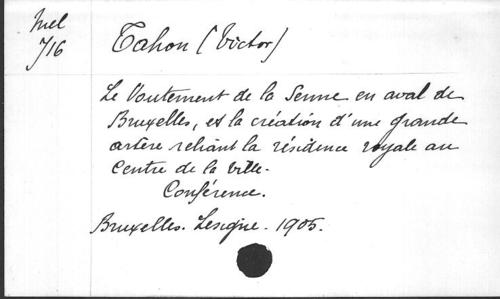 Mel
716
Tahon (Victor)
Le Voutement de la Senne en aval de
Bruxelles, et la création d'une grande
artère reliant la résidence royale au
Centre de la Ville.
Conférence.
Bruxelles. Lesigne. 1905.